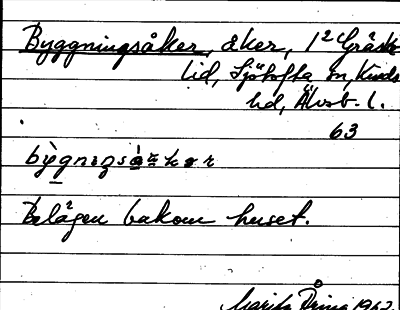 Byggningsåker, åker, 1² Gräs
lid, Sjötofta sn, Kinds
hd, Älvsb. l.
63
bỳgnɩŋsåkər
Belägen bakom huset.
Marita Åring 1962.